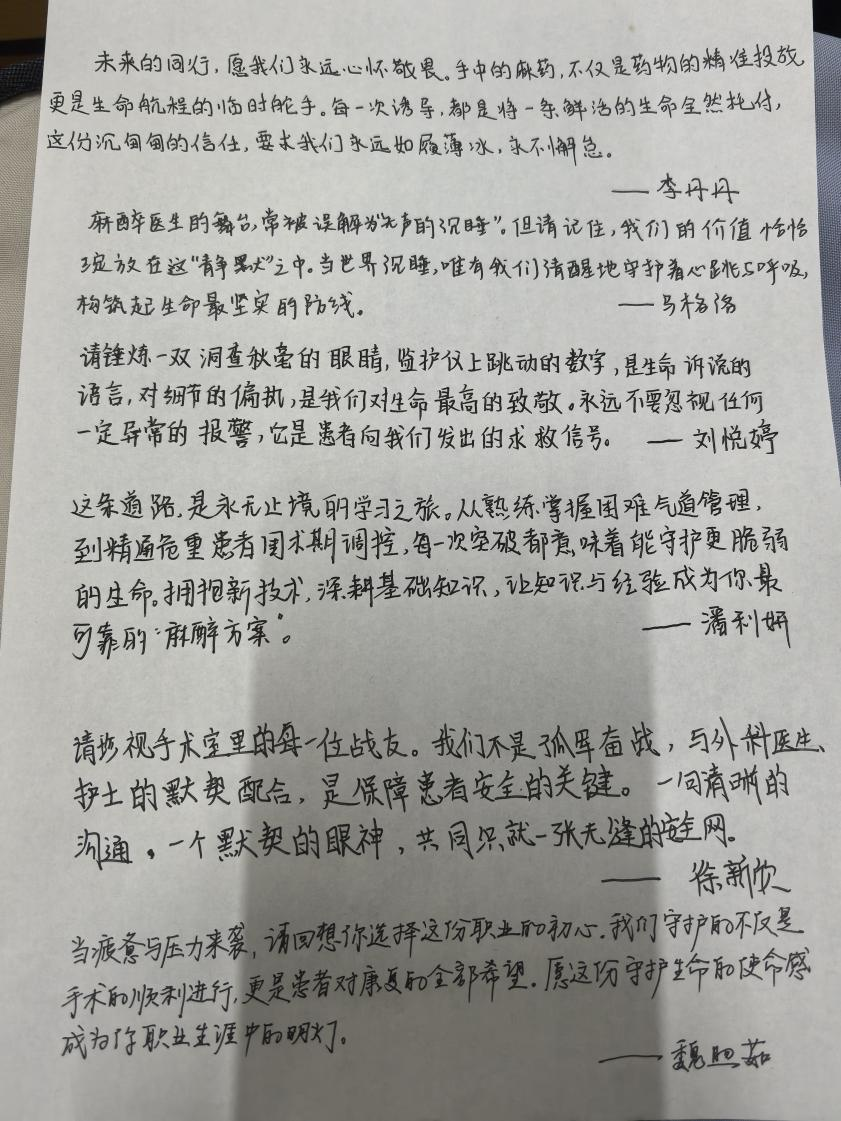 未来的同行，愿我们永远心怀敬畏。手中的麻药，不仅是药物的精准投放
更是生命航程的临时舵手。每一次诱导，都是将一条鲜活的生命全然托付，
这份沉甸甸的信任，要求我们永远如履薄冰，永不懈怠。
—— 李丹丹
麻醉医生的舞台，常被误解为“无声的沉睡”。但请记住，我们的价值恰恰
绽放在这“静默”之中。当世界沉睡，唯有我们清醒地守护着心跳与呼吸，
构筑起生命最坚实的防线。 —— 马格洛
请锤炼一双洞查秋毫的眼睛，监护仪上跳动的数字，是生命诉说的
语言，对细节的偏执，是我们对生命最高的致敬。永远不要忽视任何
一定异常的报警，它是患者向我们发出的求救信号。 —— 刘悦婷
这条道路，是永无止境的学习之旅。从熟练掌握困难气道管理，
到精通危重患者围术期调控，每一次突破都意味着能守护更脆弱
的生命。拥抱新技术，深耕基础知识，让知识与经验成为你最
可靠的“麻醉方案”。 —— 潘利妍
请珍视手术室里的每一位战友。我们不是孤军奋战，与外科医生、
护士的默契配合，是保障患者安全的关键。一句清晰的
沟通，一个默契的眼神，共同织就一张无缝的安全网。
—— 徐新欣
当疲惫与压力来袭，请回想你选择这份职业的初心。我们守护的不仅是
手术的顺利进行，更是患者对康复的全部希望。愿这份守护生命的使命感
成为你职业生涯中的明灯。
—— 魏照茹